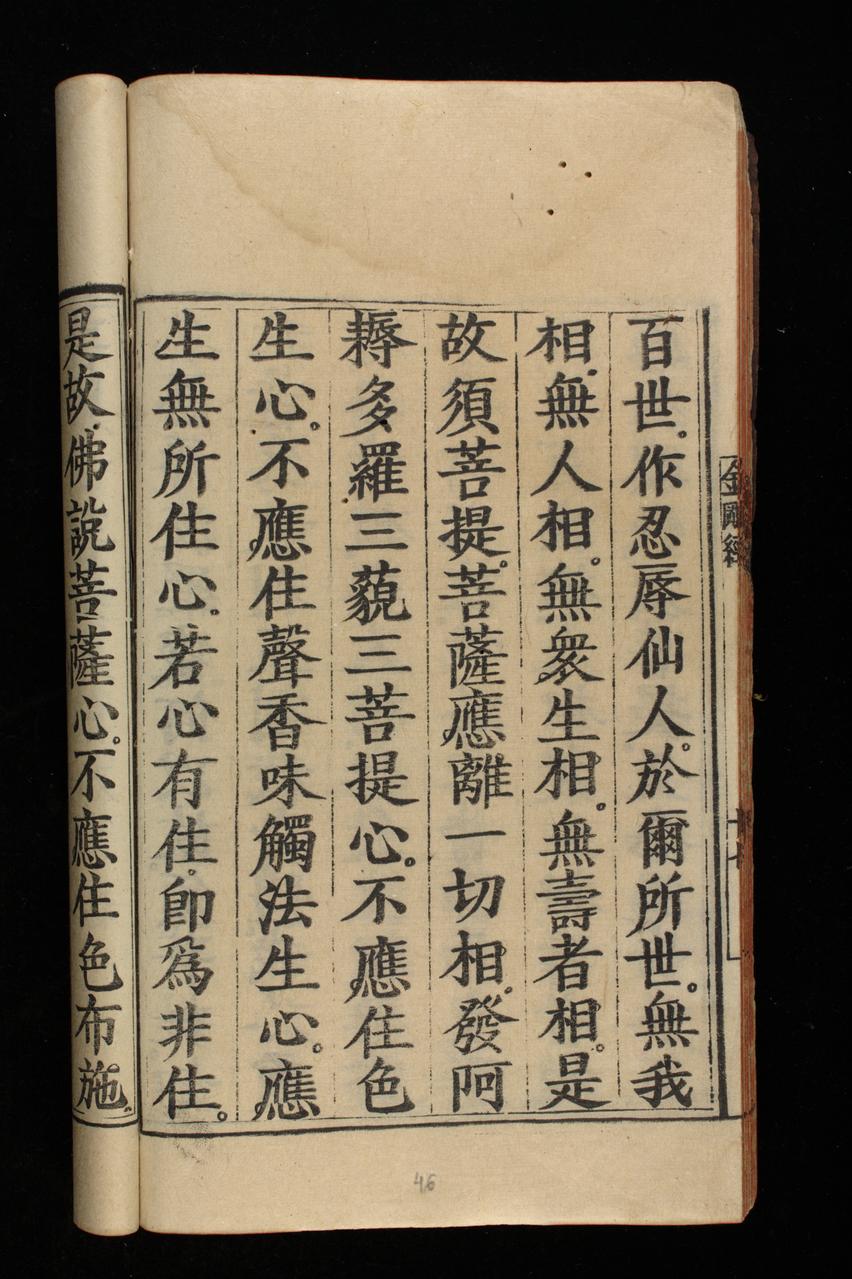 百世。作忍辱仙人。於爾所世。無我
相。無人相。無衆生相。無壽者相。是
故須菩提。菩薩應離一切相。發阿
耨多羅三藐三菩提心。不應住色
生心。不應住聲香味觸法生心。應
生無所住心。若心有住。即爲非住。
是故佛說菩薩心。不應住色布施。
金剛經
十七
46